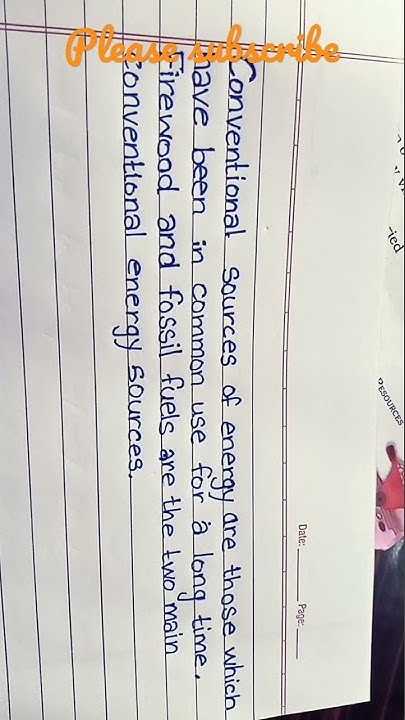 Please subscribe
Date: Page:
Conventional sources of energy are those which
have been in common use for a long time.
Firewood and fossil fuels are the two main
conventional energy sources.
RESOURCES
-ied